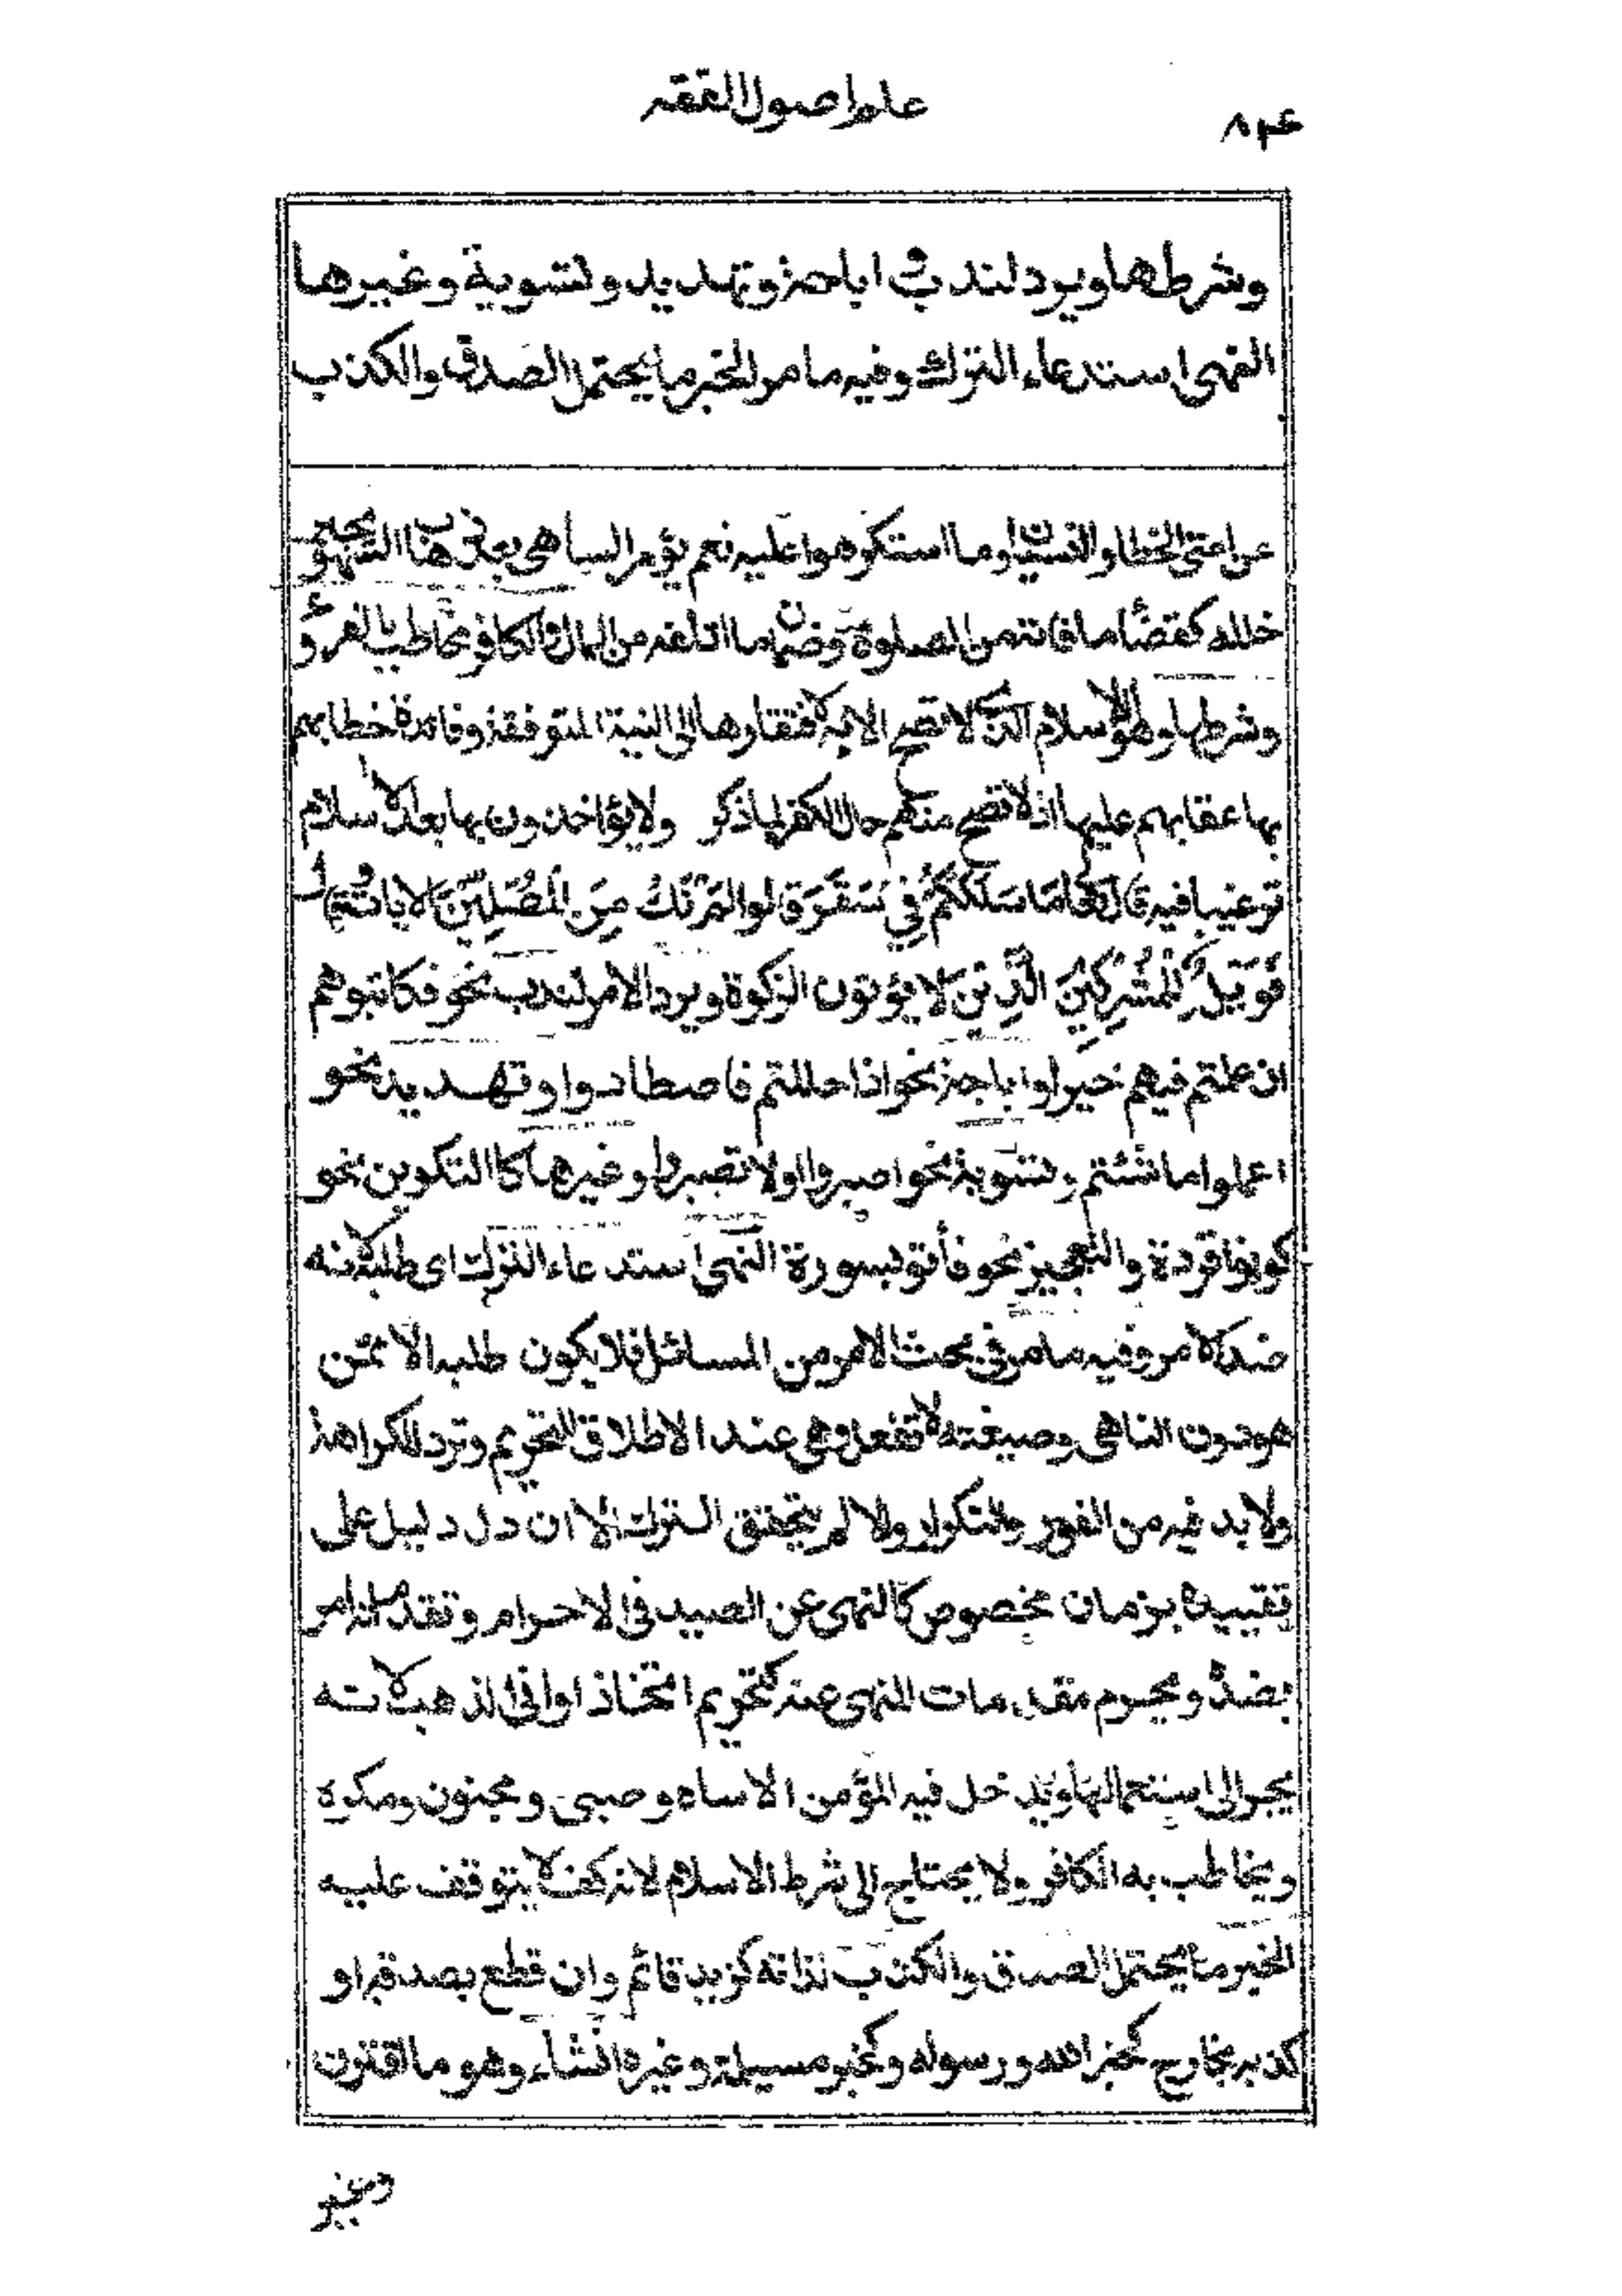 علم اصول الفقه
٨٤
وشرطها ويرد لندب اباحة وتهديد وتسوية وغيرها
النهى استدعاء الترك وفيه ما مر الخبر ما يحتمل الصدق والكذب
عن امتى الخطا والنسيان وما استكرهوا عليه نعم يؤمر الساهى بعد ذهاب السهو بجبر
خلله كقضاء ما فاته من الصلوة وضمان ما اتلفه من المال والكافر مخاطب بالفروع
وشرطها وهو الاسلام الذى لا تصح الا به لافتقارها الى النية المتوقفة وفائدة خطابهم
بها عقابهم عليها اذ لا تصح منهم حال الكفر لما ذكر ولا يؤاخذون بها بعد الاسلام
ترغيبا فيه قال تعالى مَا سَلَكَكُمْ فِي سَقَرَ قالوا لَمْ نَكُ مِنَ الْمُصَلِّيْنَ الايات
فَوَيْلٌ لِلْمُشْرِكِيْنَ الَّذِيْنَ لَا يؤتون الزكوة ويرد الامر لندب نحو فكاتبوهم
ان علمتم فيهم خيرا واباحة نحو اذا حللتم فاصطادوا وتهديد نحو
اعملوا ما شئتم وتسوية نحو اصبروا اولا تصبروا وغيرها كالتكوين نحو
كونوا قردة والتعجيز نحو فأتو بسورة النهى استدعاء الترك اى طلبه لانه
ضد الامر وفيه ما مر فى بحث الامر من المسائل فلا يكون طلبه الا ممن
هو دون الناهى وصيغته لا تفعل وهى عند الاطلاق للتحريم وترد للكراهة
ولا بد فيه من الفور والتكرار والا لم يتحقق الترك الا ان دل دليل على
تقييده بزمان مخصوص كالنهى عن الصيد فى الاحرام وتقدم انه امر
بضده ويحرم مقدمات النهى عنه كتحريم اتخاذ اوانى الذهب لانه
يجر الى استعمالها ويدخل فيه المؤمن الا ساه وصبى ومجنون ومكره
ويخاطب به الكافر ولا يحتاج الى شرط الاسلام لانه كف لا يتوقف عليه
الخبر ما يحتمل الصدق والكذب لذاته كزيد قائم وان قطع بصدقه او
كذبه بخارج كخبر الله ورسوله وكخبر مسيلمة وغيره انشاء وهو ما اقترن